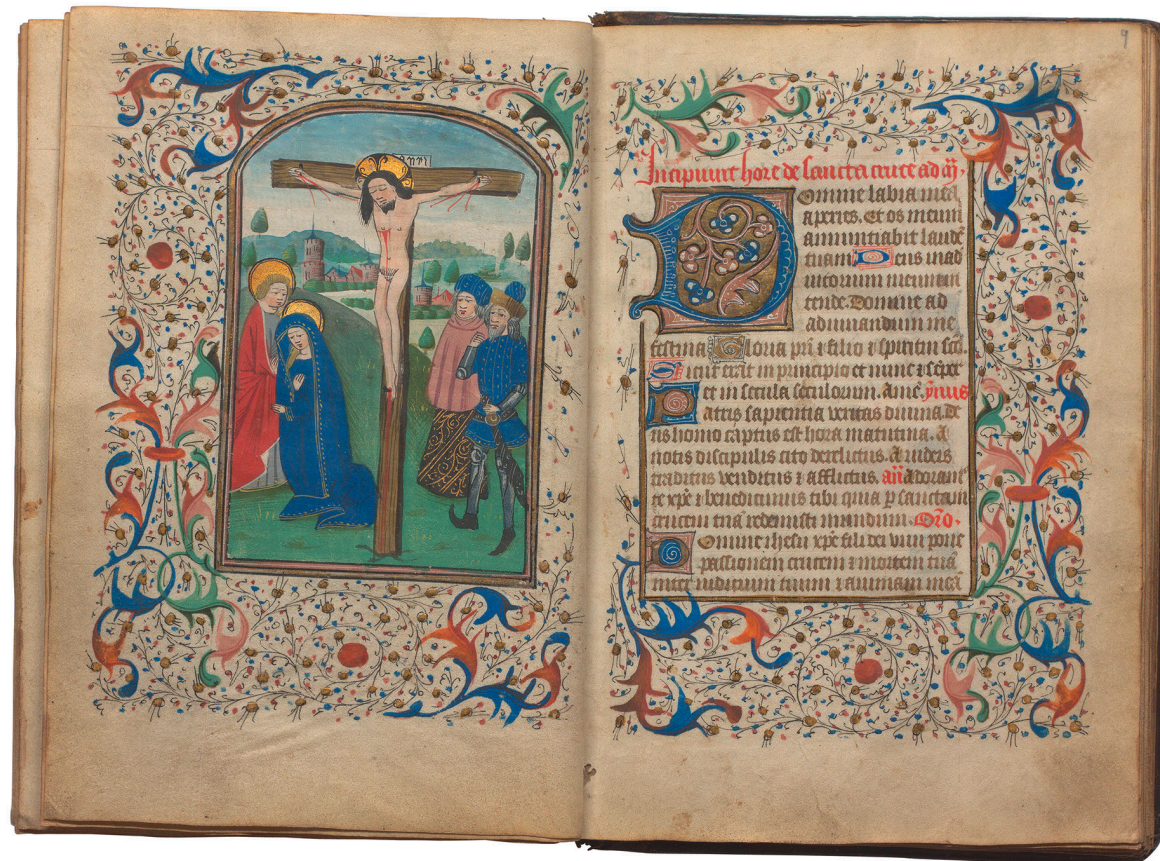 inri
9
Incipiunt hore de sancta cruce ad m̄
Domine labia mea
aperies. Et os meum
annuntiabit laudē
tuam Deus in ad
iutorium meum in
tende. Domine ad
adiuuandum me
festina Gloria pr̄i ⁊ filio ⁊ spiritui scō.
Sicut erat in principio et nunc ⁊ sēper
et in secula seculorum. Amē. ymus
Patris sapientia veritas diuina. De
us homo captus est hora matutina. A
notis discipulis cito derelictus. A iudeis
traditus venditus ⁊ afflictus. añ Adoramꝰ
te xp̄e ⁊ benedicimus tibi quia p sanctam
crucem tuā redemisti mundum. Or̄o.
Domine ihesu xp̄e fili dei viui pone
passionem crucem ⁊ mortem tuā
inter iudicium tuum ⁊ animam meā